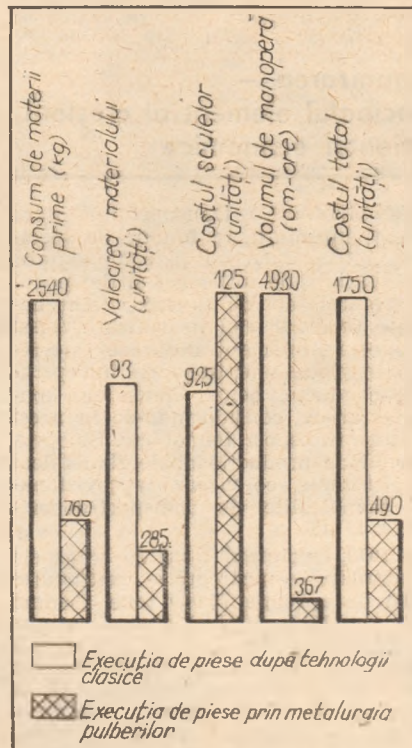 Consum de materii
prime (kg)
Valoarea materialului
(unități)
Costul sculelor
(unități)
Volumul de manoperă
(om-ore)
Costul total
(unități)
2540
760
93
28,5
92,5
125
4930
367
1750
490
Execuția de piese după tehnologii
clasice
Execuția de piese prin metalurgia
pulberilor